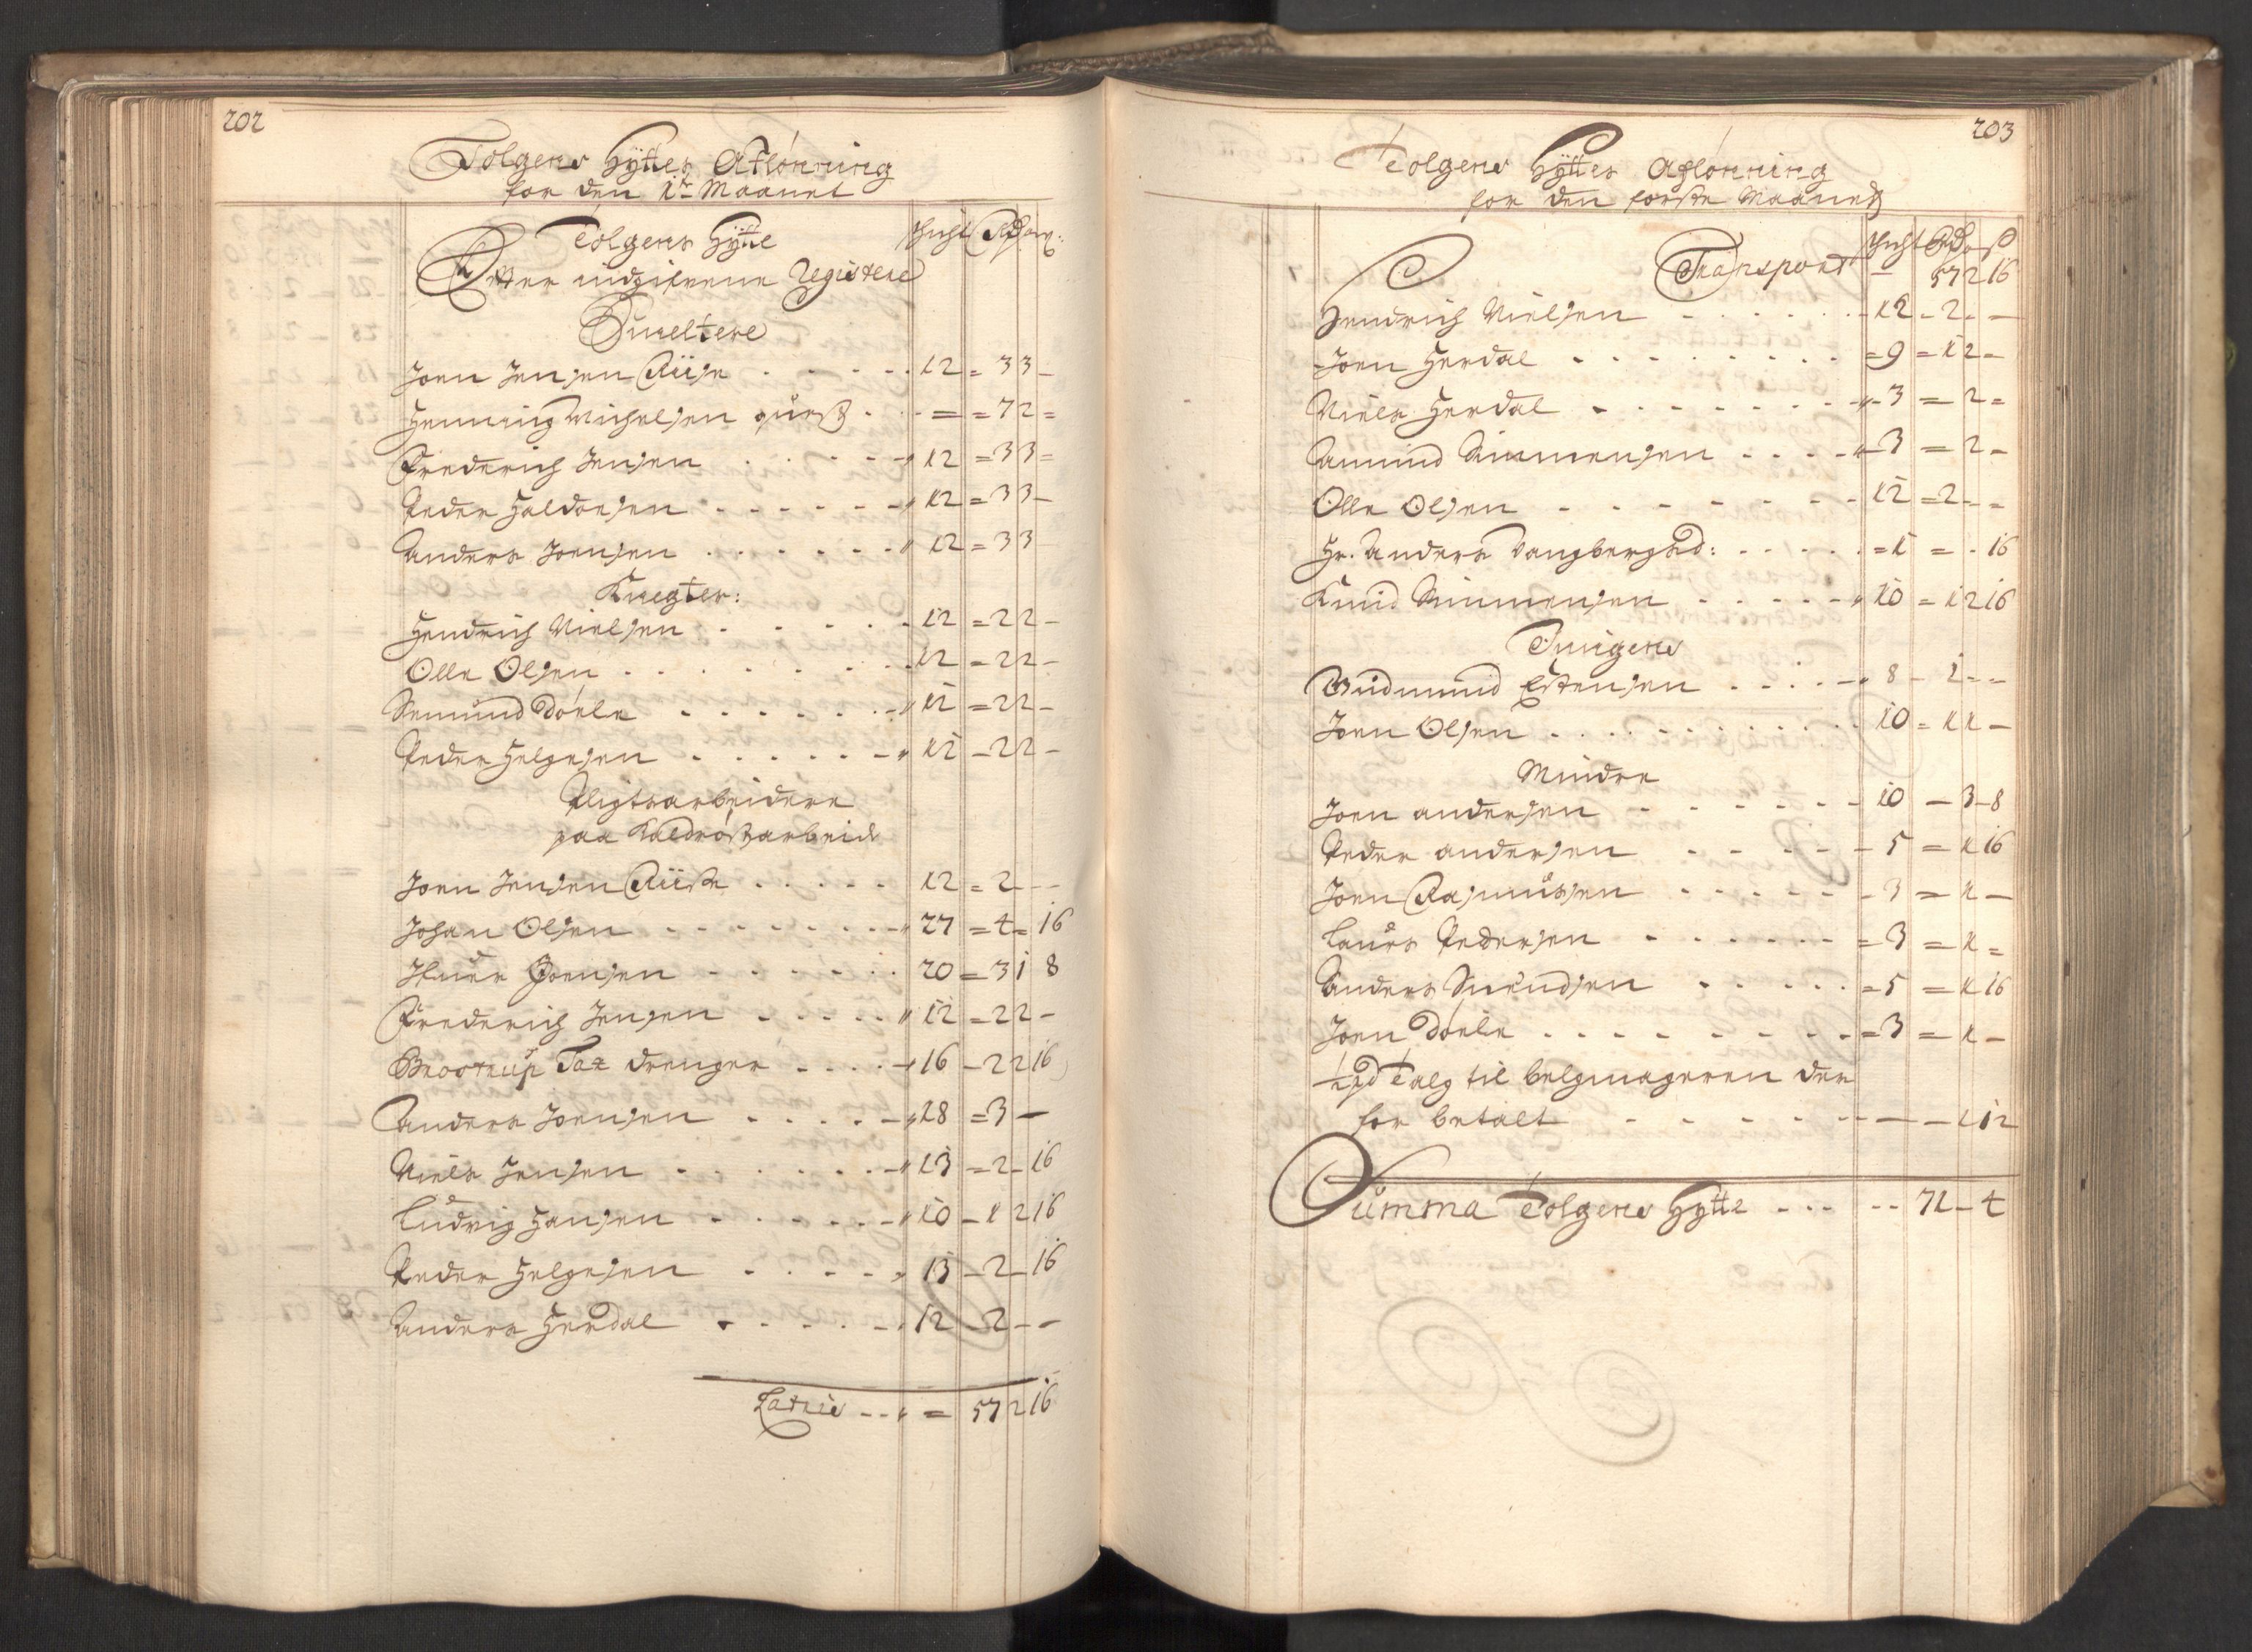 202
Tolgens Hÿttes Aflönning
for den 1te Maanet
Tolgens Hÿtte
Schicht Rdr ort ß
Efter indgifvene Registere
Smeltere
Joen Jensen Riise . . . . . 12 = 3 3 –
Henning Michelsen . . – = 7 2 =
Frederich Jensen . . . . . 12 = 3 3 =
Peder Haldorsen . . . . . . 12 = 3 3 –
Anders Joensen . . . . . . 12 = 3 3
Knegter:
Hendrich Nielsen . . . . . 12 = 2 2 –
Olle Olsen . . . . . . . 12 – 2 2 –
Semund Döele . . . . . . 12 = 2 2 –
Peder Helgesen . . . . . . 12 – 2 2 –
Pligtsarbeidere
paa Kaldröstarbeid
Joen Jensen Riise . . . . . 12 = 2 – –
Johan Olsen . . . . . . . 27 = 4 = 16
Ifuer Joensen . . . . . . 20 = 3 1 8
Frederich Jensen . . . . . 12 – 2 2 –
Brostrup Tax drenger . . . . 16 – 2 2 16
Anders Joensen . . . . . 18 = 3 –
Niels Jensen . . . . . . 13 = 2 – 16
Ludvig Hansen . . . . . . 10 – 1 2 16
Peder Helgesen . . . . . 13 – 2 – 16
Anders Herdal . . . . . 12 – 2 – –
Latris . . . = 57 2 16
203
Tolgens Hÿttes Aflönning
for den förste Maanet
Schicht Rdr ort ß
Transport – 57 2 16
Hendrich Nielsen . . . . . . 12 – 2 – –
Joen Herdal . . . . . . . . = 9 = 1 2 =
Niels Herdal . . . . . . . 3 = 2 =
Amund Simmensen . . . . 3 = 2 –
Olle Olsen . . . . . . . 12 = 2 – =
Hr. Anders Vangbergs d: . . . . . = 1 = . 16
Knud Simmensen . . . . . 10 = 1 2 16
Tingere
Gudmund Estensen . . . . 8 – 1 – –
Joen Olsen . . . . . . . . . 10 = 1 1 –
Mindre
Joen andersen . . . . . . 10 – 3 – 8
Peder andersen . . . . . 5 = 1 16
Joen Rasmussen . . . . . 3 = 1 –
Laurs Pedersen . . . . . . = 3 = 1 =
Anders Suendsen . . . . . = 5 = 1 16
Joen Döele . . . . . . . . = 3 = 1 –
Talg til belgmageren der
for betalt . . . . . – – – 1 12
Summa Tolgens Hÿtte . . . . . 71 – 4